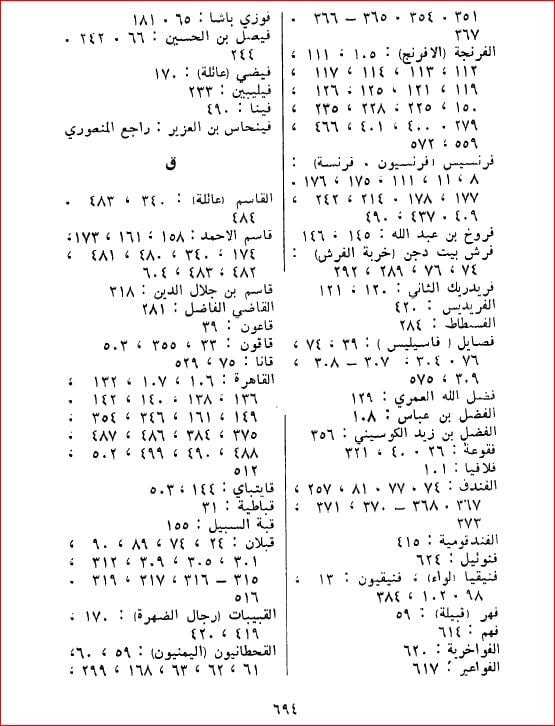 ٣٥١ ، ٣٥٤ ، ٣٦٥ – ٣٦٦ ،
٣٦٧
الفرنجة (الافرنج) : ١٠٥ ، ١١١ ،
١١٢ ، ١١٣ ، ١١٤ ، ١١٧ ،
١١٩ ، ١٢١ ، ١٢٥ ، ١٢٦ ،
١٥٠ ، ٢٢٥ ، ٢٢٨ ، ٢٣٥ ،
٢٧٩ ، ٤٠٠ ، ٤٠١ ، ٤٦٦ ،
٥٥٩ ، ٥٧٢
فرنسيس (فرنسيون ، فرنسة) :
٨ ، ١١ ، ١١١ ، ١٧٥ ، ١٧٦ ،
١٧٧ ، ١٧٨ ، ٢١٤ ، ٢٤٢ ،
٤٠٩ ، ٤٣٧ ، ٤٩٠
فروخ بن عبد الله : ١٤٥ ، ١٤٦
فرش بيت دجن (خربة الفرش) :
٧٤ ، ٧٦ ، ٢٨٩ ، ٢٩٢
فريدريك الثاني : ١٢٠ ، ١٢١
الفريديس : ٤٢٠
الفسطاط : ٢٨٤
فصايل (فاسيليس) : ٣٩ ، ٧٤ ،
٧٦ ، ٣٠٤ ، ٣٠٧ – ٣٠٨ ،
٣٠٩ ، ٥٧٥
فضل الله العمري : ١٢٩
الفضل بن عباس : ١٠٨
الفضل بن زيد الكوسيني : ٣٥٦
فقوعة : ٢٦ ، ٤٠ ، ٣٢١
فلافيا : ١٠١
الفندق : ٧٤ ، ٧٧ ، ٨١ ، ٢٥٧ ،
٣٦٧ ، ٣٦٨ – ٣٧٠ ، ٣٧١ ،
٣٧٣
الفندقومية : ٤١٥
فنوئيل : ٦٢٤
فنيقيا (لواء) ، فنيقيون : ١٣ ،
٩٨ ، ١٠٢ ، ٣٨٤
فهر (قبيلة) : ٥٩
فهم : ٦١٤
الفواخرية : ٦٢٠
الفواعير : ٦١٧
فوزي باشا : ٦٥ ، ١٨١
فيصل بن الحسين : ٦٦ ، ٢٤٢ ،
٢٤٤
فيضي (عائلة) : ١٧٠
فيليبين : ٢٣٣
فينا : ٤٩٠
فينحاس بن العزير : راجع المنصوري
ق
القاسم (عائلة) : ٣٤٠ ، ٤٨٣ ،
٤٨٤
قاسم الاحمد : ١٥٨ ، ١٦١ ، ١٧٣،
١٧٤ ، ٣٤٠ ، ٤٨٠ ، ٤٨١ ،
٤٨٢ ، ٤٨٣ ، ٦٠٤
قاسم بن جلال الدين : ٣١٨
القاضي الفاضل : ٢٨١
قاعون : ٣٩
قاقون : ٣٣ ، ٣٥٥ ، ٥٠٣
قانا : ٧٥ ، ٥٢٩
القاهرة : ١٠٦ ، ١٠٧ ، ١٣٢ ،
١٣٦ ، ١٣٨ ، ١٤٠ ، ١٤٢ ،
١٤٩ ، ١٦١ ، ٣٤٦ ، ٣٥٤ ،
٣٧٥ ، ٣٨٤ ، ٤٨٦ ، ٤٨٧ ،
٤٨٨ ، ٤٩٠ ، ٤٩٩ ، ٥٠٢ ،
٥١٢
قايتباي : ١٤٤ ، ٥٠٣
قباطية : ٣١
قبة السبيل : ١٥٥
قبلان : ٢٤ ، ٧٤ ، ٨٩ ، ٩٠ ،
٣٠١ ، ٣٠٥ ، ٣٠٩ ، ٣١٢ ،
٣١٥ – ٣١٦ ، ٣١٧ ، ٣١٩ ،
٥١٦
القبيبات (رجال الضهرة) : ١٧٠ ،
٤١٩ ، ٤٢٠
القحطانيون (اليمنيون) : ٥٩ ، ٦٠،
٦١ ، ٦٢ ، ٦٣ ، ١٦٨ ، ٢٩٩ ،
٦٩٤